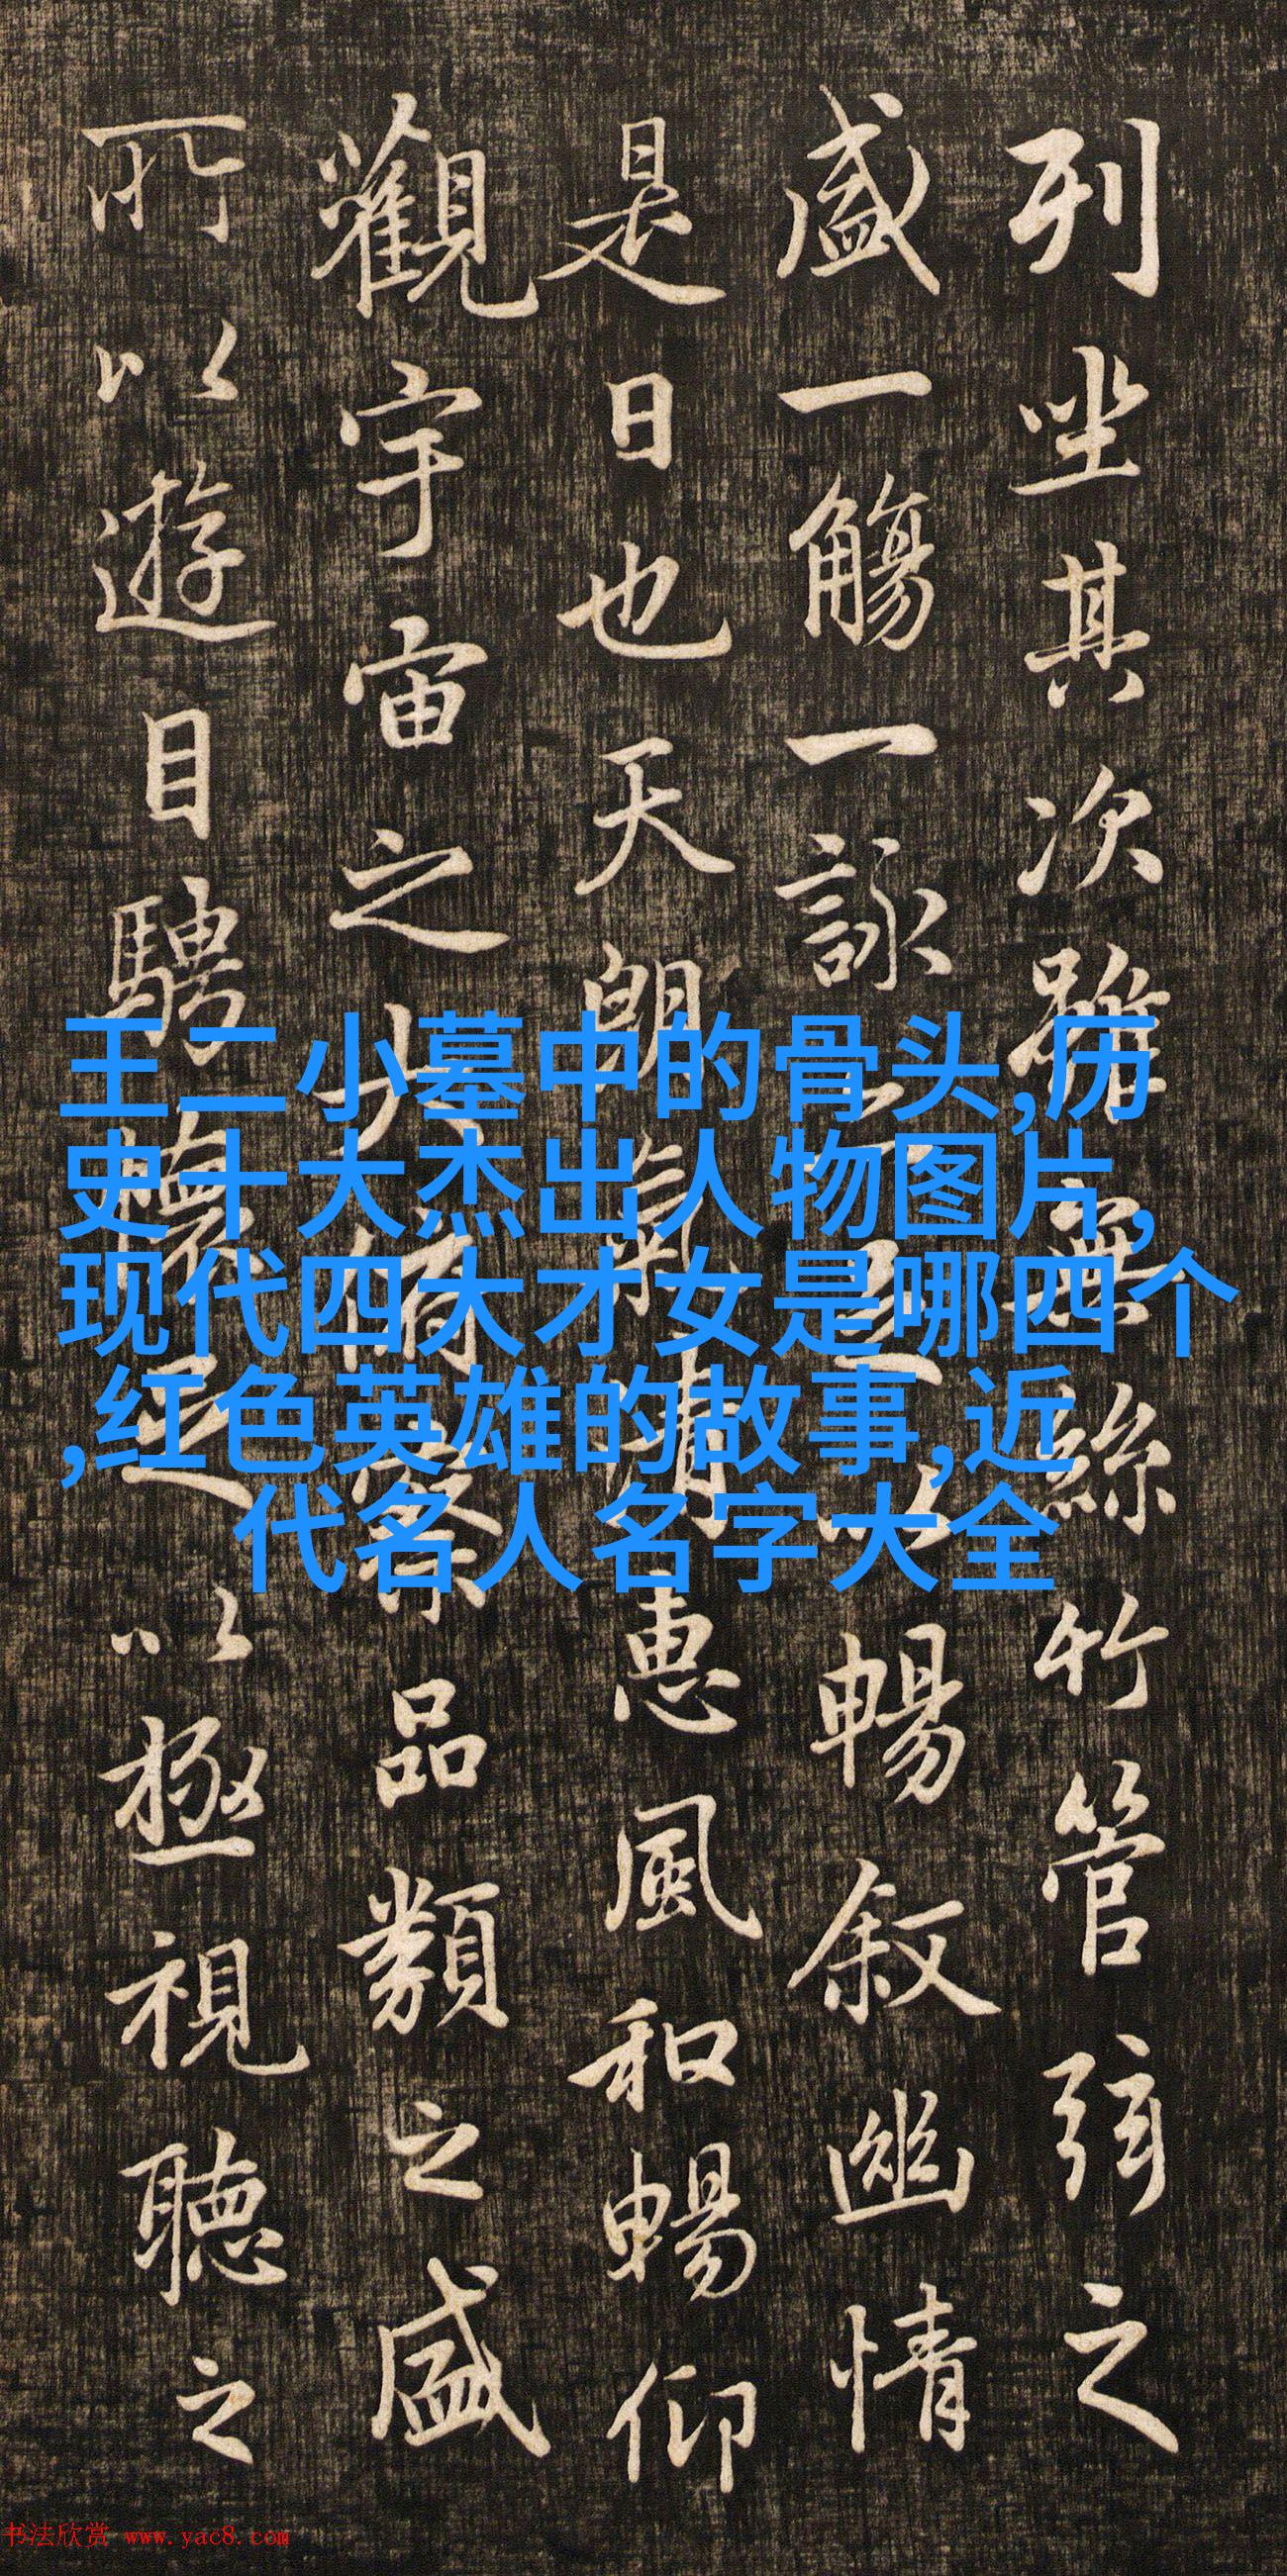 列坐其次雖無絲竹管弦之
盛一觴一詠亦足以暢叙幽情
是日也天朗氣清惠風和暢仰
觀宇宙之大俯察品類之盛
所以遊目騁懷足以極視聽之
王二小墓中的骨头,历
史十大杰出人物图片,
现代四大才女是哪四个
,红色英雄的故事,近
代名人名字大全
书法欣赏 www.yac8.com